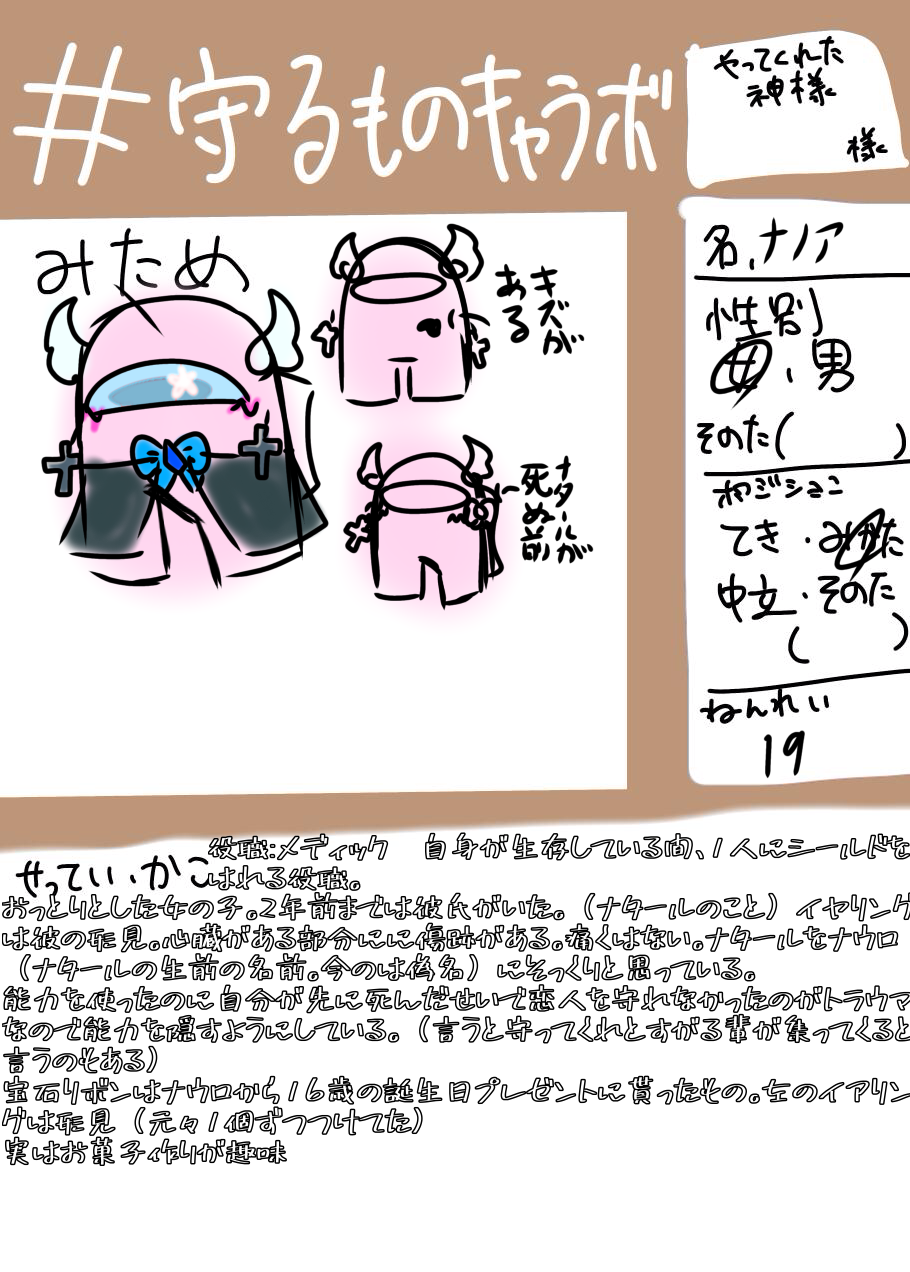 #守るものキャラボ
やってくれた
神様
様
みため
キズが
ある
ナタールが
死ぬ前
名、ナノア
性別
女・男
そのた( )
ポジション
てき・みかた
中立・そのた
( )
ねんれい
19
せってい・かこ
役職:メディック 自身が生存している間、1人にシールドを
はれる役職。
おっとりとした女の子。2年前までは彼氏がいた。(ナタールのこと)イヤリング
は彼の形見。心臓がある部分にに傷跡がある。痛くはない。ナタールをナウロ
(ナタールの生前の名前。今のは偽名)にそっくりと思っている。
能力を使ったのに自分が先に死んだせいで恋人を守れなかったのがトラウマ
なので能力を隠すようにしている。(言うと守ってくれとすがる輩が集ってくると
言うのもある)
宝石リボンはナウロから16歳の誕生日プレゼントに貰ったもの。左のイアリン
グは形見(元々1個ずつつけてた)
実はお菓子作りが趣味